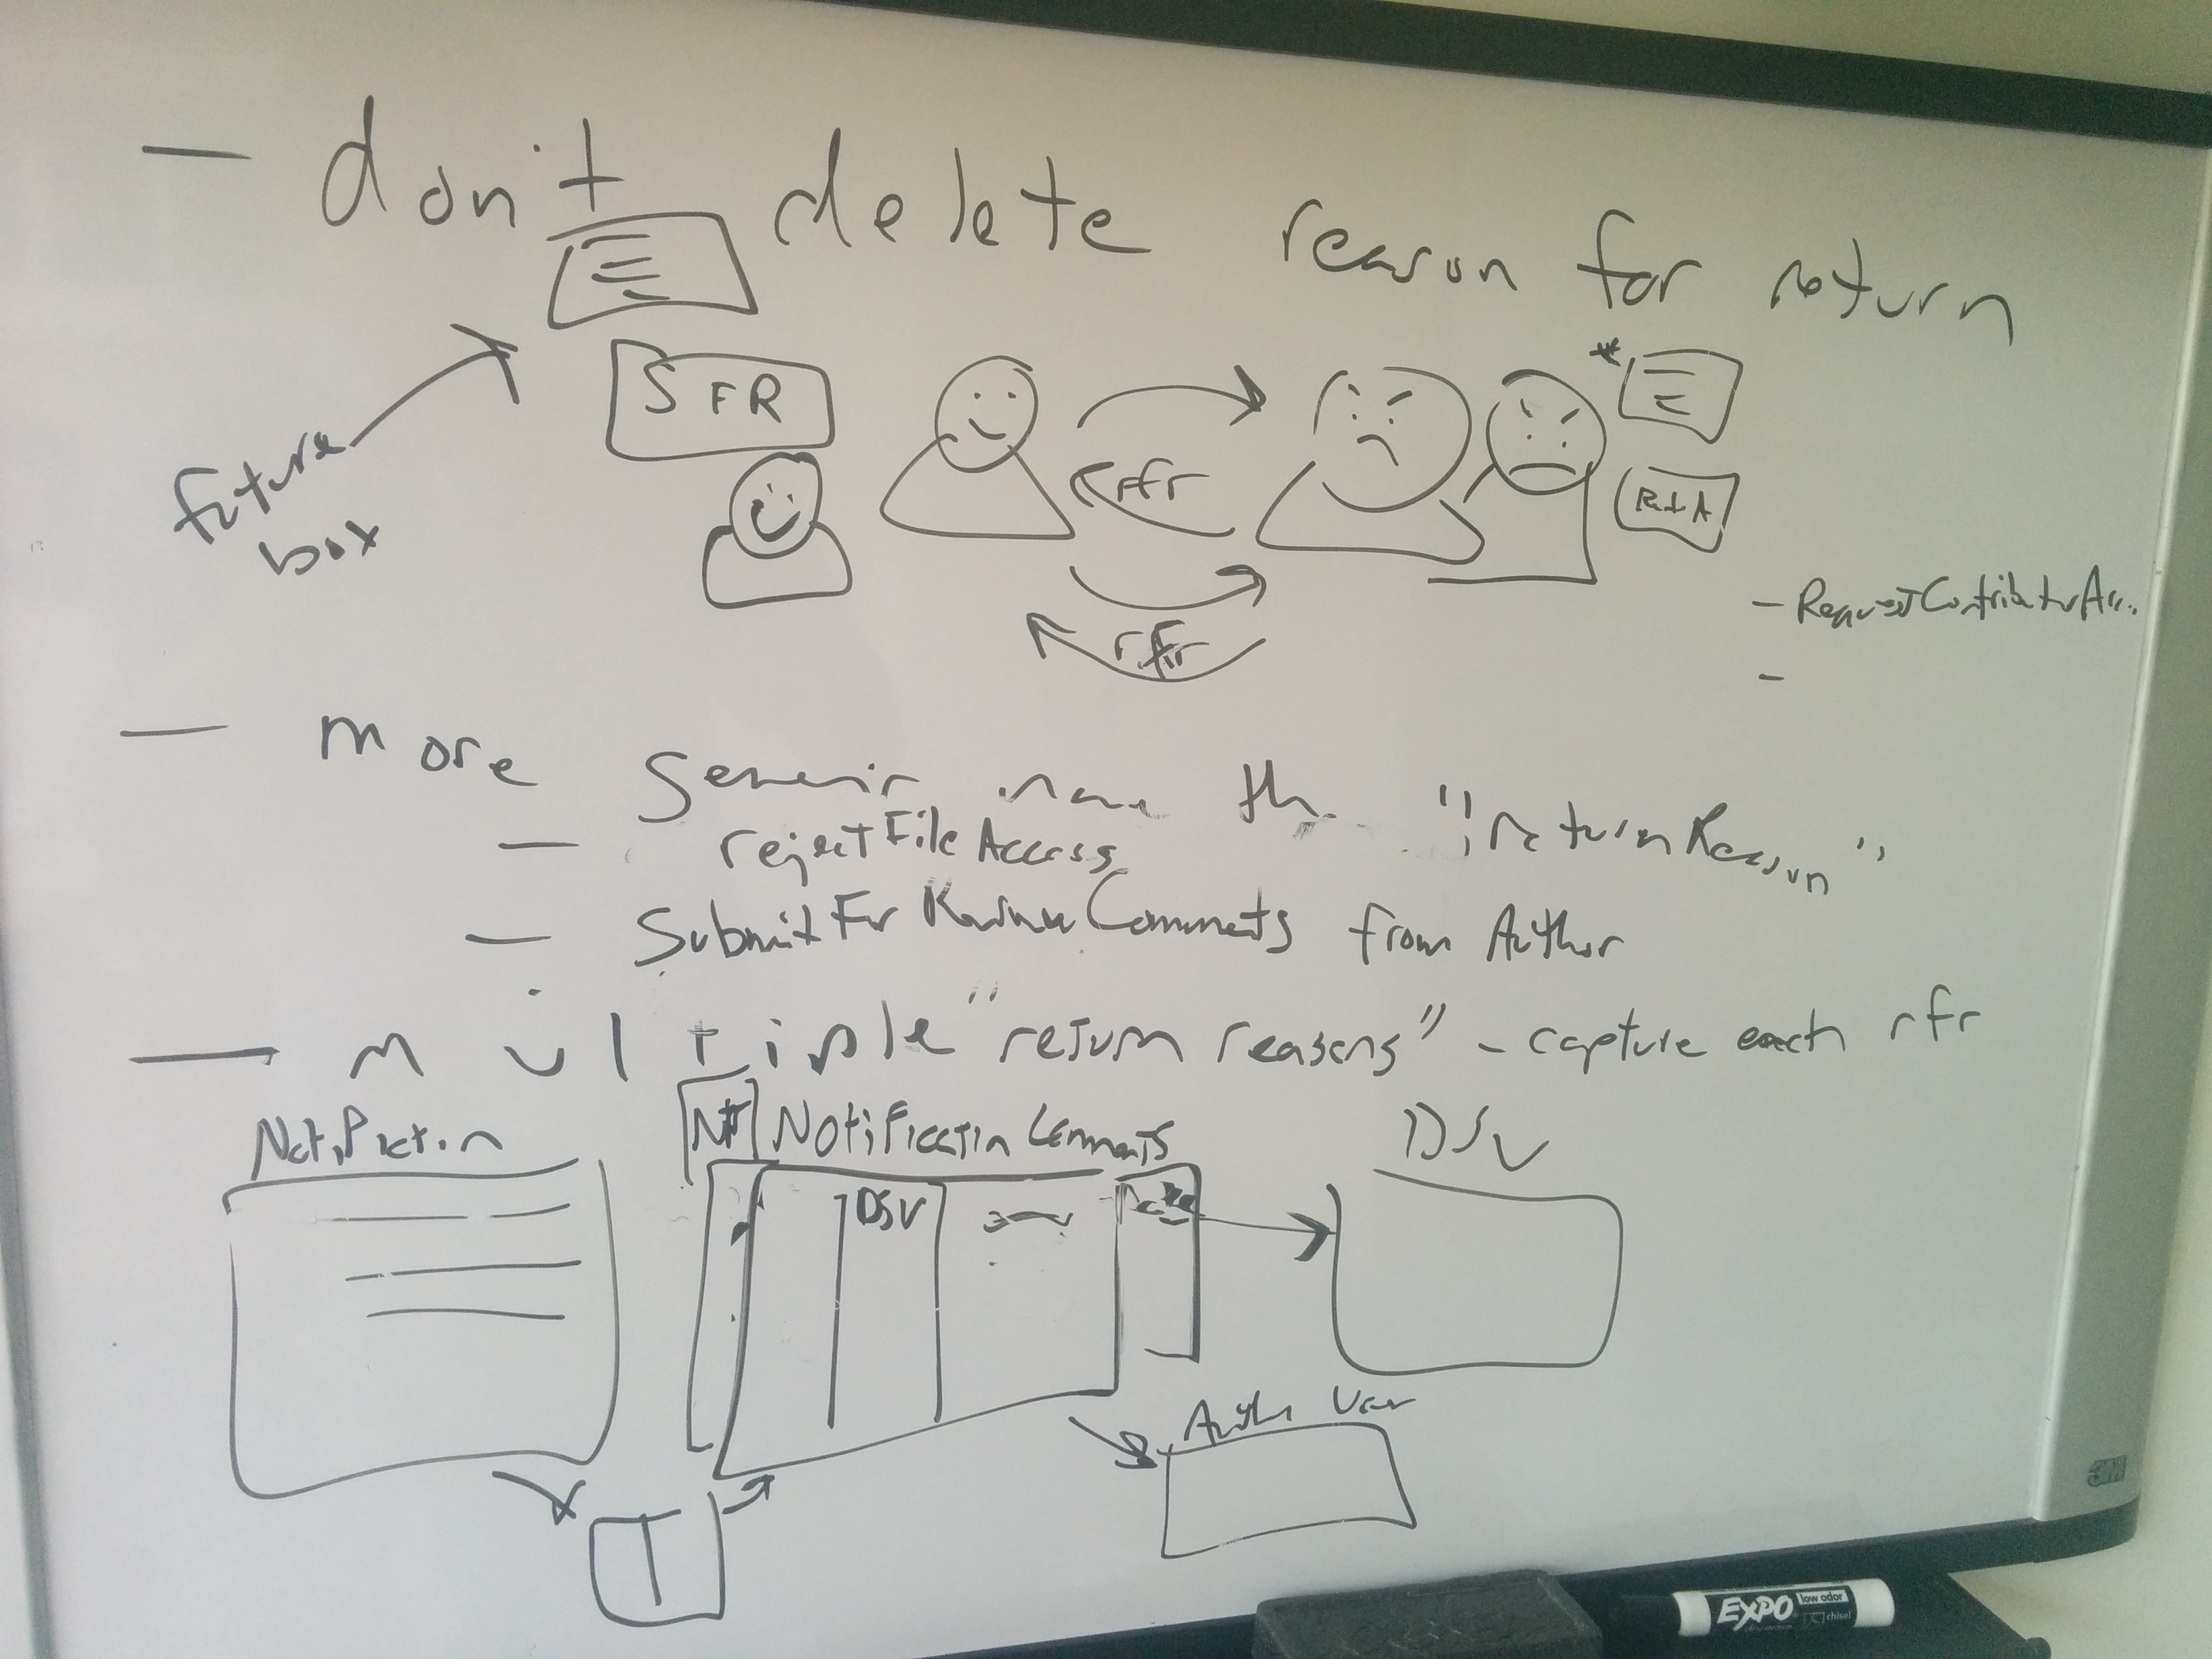 — don't delete reason for return
SFR
future
box
rfr
rfr
* 
- RequestContributorAcc..
-
— more generic name than "returnReason"
— rejectFileAccess
— Submit For Comments from Author
— multiple "return reasons" - capture each rfr
Notification
Notification Comments
DSV
DSV
Auth User
3M
EXPO
low odor
chisel